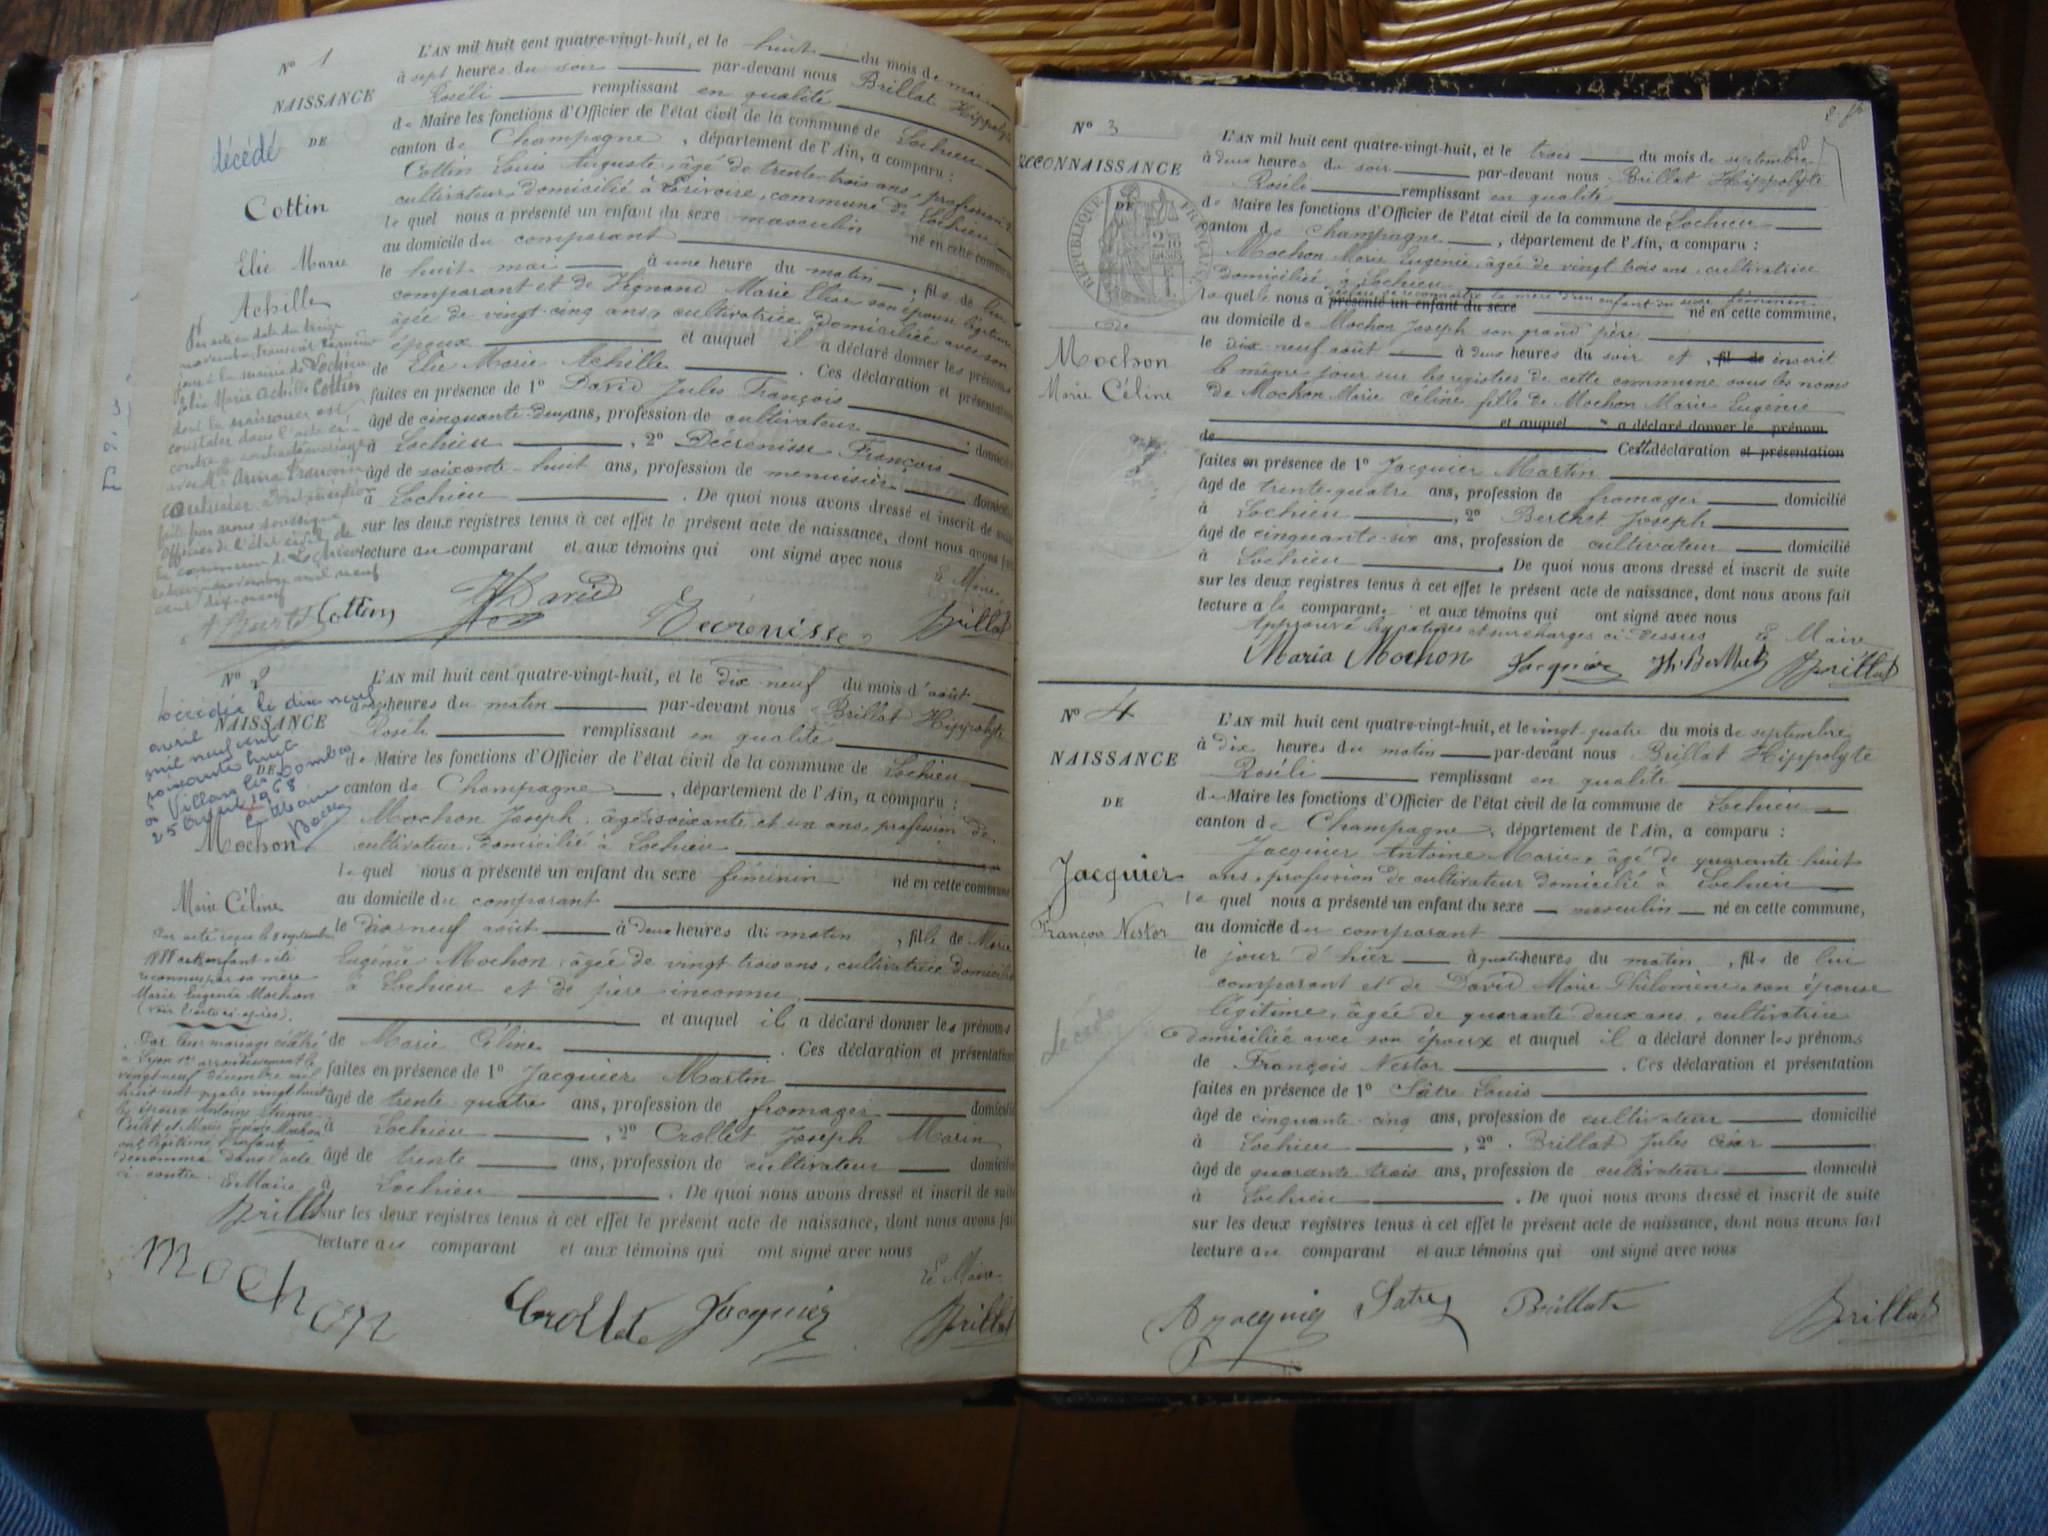 N° 1
NAISSANCE
DE
décédé
Cottin
Elie Marie
Achille
L'AN mil huit cent quatre-vingt-huit, et le huit du mois de mai
à sept heures du soir par-devant nous Brillat Hippolyte
Roséli remplissant en qualité
de Maire les fonctions d'Officier de l'état civil de la commune de Lochieu
canton de Champagne, département de l'Ain, a comparu :
Cottin Louis Auguste, âgé de trente-trois ans, profession
cultivateur, domicilié à commune de Lochieu
lequel nous a présenté un enfant du sexe masculin né en cette commune
au domicile du comparant
le huit mai à une heure du matin, fils de lui
comparant et de Marie son épouse légitime
âgée de vingt-cinq ans, cultivatrice domiciliée avec son
époux et auquel il a déclaré donner les prénoms
de Elie Marie Achille. Ces déclaration et présentation
faites en présence de 1° David Jules François
âgé de cinquante-deux ans, profession de cultivateur domicilié
à Lochieu, 2° Décrenisse François
âgé de soixante-huit ans, profession de menuisier domicilié
à Lochieu. De quoi nous avons dressé et inscrit de suite
sur les deux registres tenus à cet effet le présent acte de naissance, dont nous avons fait
lecture au comparant et aux témoins qui ont signé avec nous
Le Maire
Cottin David Décrenisse Brillat
N° 2
NAISSANCE
DE
Décédée le dix neuf
avril
mil neuf cent
soixante huit
à Villars les Dombes
25 Avril 1968
Le Maire
Mochon
Marie Céline
Par acte reçu le 3 septembre
1888 cet enfant a été
reconnu par sa mère
Marie Eugénie Mochon
(voir l'acte ci-après).
Par leur mariage célébré
à Lyon 1er arrondissement le
vingt neuf décembre mil
huit cent quatre vingt huit
les époux Antoine Etienne
et Marie Eugénie Mochon
ont légitimé l'enfant
dénommé dans l'acte
ci-contre. Le Maire
Brillat
L'AN mil huit cent quatre-vingt-huit, et le dix-neuf du mois d'août
à heures du matin par-devant nous Brillat Hippolyte
Roséli remplissant en qualité
de Maire les fonctions d'Officier de l'état civil de la commune de Lochieu
canton de Champagne, département de l'Ain, a comparu :
Mochon Joseph, âgé soixante et un ans, profession de
cultivateur, domicilié à Lochieu
lequel nous a présenté un enfant du sexe féminin né en cette commune
au domicile du comparant
le dix-neuf août à deux heures du matin, fille de Marie
Eugénie Mochon, âgée de vingt-trois ans, cultivatrice domiciliée
à Lochieu et de père inconnu
et auquel il a déclaré donner les prénoms
de Marie Céline. Ces déclaration et présentation
faites en présence de 1° Jacquier Martin
âgé de trente quatre ans, profession de fromager domicilié
à Lochieu, 2° Crollet Joseph Marin
âgé de trente ans, profession de cultivateur domicilié
à Lochieu. De quoi nous avons dressé et inscrit de suite
sur les deux registres tenus à cet effet le présent acte de naissance, dont nous avons fait
lecture au comparant et aux témoins qui ont signé avec nous
Le Maire
Mochon Crollet Jacquier Brillat
N° 3
RECONNAISSANCE
DE
RÉPUBLIQUE FRANÇAISE
de
Mochon
Marie Céline
L'AN mil huit cent quatre-vingt-huit, et le trois du mois de septembre
à deux heures du soir par-devant nous Brillat Hippolyte
Roséli remplissant en qualité
de Maire les fonctions d'Officier de l'état civil de la commune de Lochieu
canton de Champagne, département de l'Ain, a comparu :
Mochon Marie Eugénie, âgée de vingt trois ans, cultivatrice
domiciliée à Lochieu
déclaré se reconnaître la mère d'un enfant du sexe féminin
laquelle nous a présenté un enfant du sexe né en cette commune,
au domicile de Mochon Joseph son grand père
le dix-neuf août à deux heures du soir et, fil de inscrit
le même jour sur les registres de cette commune sous les noms
de Mochon Marie Céline fille de Mochon Marie Eugénie
et auquel a déclaré donner le prénom
de Cette déclaration et présentation
faites en présence de 1° Jacquier Martin
âgé de trente-quatre ans, profession de fromager domicilié
à Lochieu, 2° Berthet Joseph
âgé de cinquante-six ans, profession de cultivateur domicilié
à Lochieu. De quoi nous avons dressé et inscrit de suite
sur les deux registres tenus à cet effet le présent acte de naissance, dont nous avons fait
lecture a la comparante et aux témoins qui ont signé avec nous
Approuvé les ratures et surcharges ci-dessus Le Maire
Maria Mochon Jacquier Berthet Brillat
N° 4
NAISSANCE
DE
Jacquier
François Nestor
décédé
L'AN mil huit cent quatre-vingt-huit, et le vingt-quatre du mois de septembre
à dix heures du matin par-devant nous Brillat Hippolyte
Roséli remplissant en qualité
de Maire les fonctions d'Officier de l'état civil de la commune de Lochieu
canton de Champagne, département de l'Ain, a comparu :
Jacquier Antoine Marie, âgé de quarante-huit
ans, profession de cultivateur domicilié à Lochieu
lequel nous a présenté un enfant du sexe masculin né en cette commune,
au domicile du comparant
le jour d'hier à quatre heures du matin, fils de lui
comparant et de David Marie Philomène, son épouse
légitime, âgée de quarante deux ans, cultivatrice
domiciliée avec son époux et auquel il a déclaré donner les prénoms
de François Nestor. Ces déclaration et présentation
faites en présence de 1° Sâtre Louis
âgé de cinquante-cinq ans, profession de cultivateur domicilié
à Lochieu, 2° Brillat Jules César
âgé de quarante trois ans, profession de cultivateur domicilié
à Lochieu. De quoi nous avons dressé et inscrit de suite
sur les deux registres tenus à cet effet le présent acte de naissance, dont nous avons fait
lecture au comparant et aux témoins qui ont signé avec nous
A Jacquier Satre Brillat Brillat